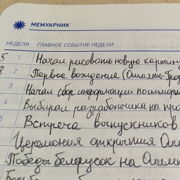 МЕМУАРНИК
НЕДЕЛЯ ГЛАВНОЕ СОБЫТИЕ НЕДЕЛИ
1 Начали рисовать новую картину
2 Первое вождение
3 Начали сбор информации
4 Выбирали разработчика на
5 Встреча выпускников
Церемония открытия Олим
Победы беларусок на Олим